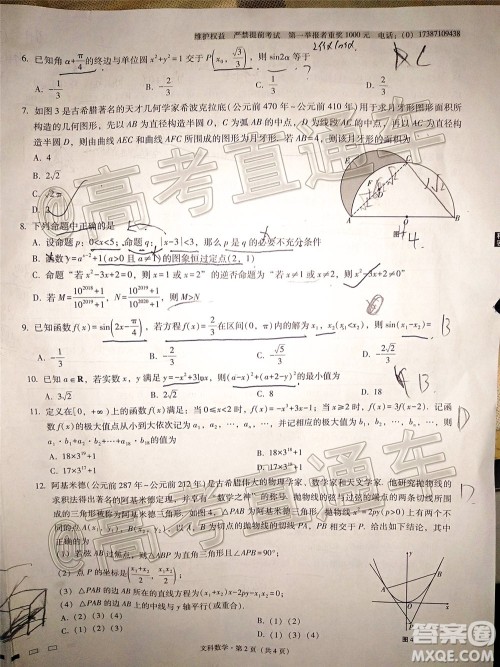 维护权益 严禁提前考试 第一举报者重奖1000元 电话:(0) 17387109438
6. 已知角α+π/6的终边与单位圆x²+y²=1交于P(x₀, √3/3), 则sin2α等于
A. -1/3 B. -2/3 C. 1/3
7. 如图3是古希腊著名的天才几何学家希波克拉底(公元前470年-公元前410年)用于求月牙形图形面积所
构造的几何图形, 先以AB为直径构造半圆O, C为弧AB的中点, D为线段AC的中点, 再以AC为直径构造半圆
D, 则由曲线AEC和曲线AFC所围成的图形为月牙形. 若AB=4, 则该月牙形的面积为
A. 4
B. 2√2
C.
D. 2
8. 下列命题中正确的是
A. 设命题p: 0<x<5, 命题q: |x-3|<3, 那么p是q的必要不充分条件
B. 函数y=aˣ⁻²+1(a>0且a≠1)的图象恒过定点(2, 1)
C. 命题“若x²-3x+2=0, 则x=1或x=2”的逆否命题为“若x≠1或x≠2, 则x²-3x+2≠0”
D. 若M=(10²⁰¹⁸+1)/(10²⁰¹⁹+1), N=(10²⁰¹⁹+1)/(10²⁰²⁰+1), 则M>N
9. 已知函数f(x)=sin(2x-π/4), 若方程f(x)=2/3在区间(0, π)内的解为x₁, x₂(x₁<x₂), 则sin(x₁-x₂)=
A. -1/3 B. -2/3 C. -√5/3 D. -2√2/3
10. 已知a∈R, 若实数x, y满足y=-x²+3lnx, 则(a-x)²+(a+2-y)²的最小值为
A. 3√2 B. 8 C. D. 18
11. 定义在[0, +∞)上的函数f(x)满足: 当0≤x<2时, f(x)=-x³+3x-1; 当x≥2时, f(x)=3f(x-2). 记
函数f(x)的极大值点从小到大依次记为a₁, a₂, …, 并记相应的极大值为b₁, b₂, …, 则
a₁·b₁+a₂·b₂+…+a₁₈·b₁₈的值为
A. 18×3¹⁸+1 B. 18×3¹⁹+1
C. 17×3¹⁸+1 D. 17×3¹⁹+1
12. 阿基米德(公元前287年-公元前212年)是古希腊伟大的物理学家、数学家和天文学家. 他研究抛物线的
求积法得出著名的阿基米德定理, 并享有“数学之神”的称号. 抛物线的弦与过弦的端点的两条切线所围成
的三角形被称为阿基米德三角形. 如图4, △PAB为阿基米德三角形. 抛物线x²=2py(p>0)上有两个不
同的点A(x₁, y₁), B(x₂, y₂), 以A, B为切点的抛物线的切线PA, PB相交于P. 给出如下结论, 其中正确的为
(1) 若弦AB过焦点, 则△ABP为直角三角形且∠APB=90°;
(2) 点P的坐标是((x₁+x₂)/2, x₁x₂/2);
(3) △PAB的边AB所在的直线方程为(x₁+x₂)x-2py-x₁x₂=0;
(4) △PAB的边AB上的中线与y轴平行(或重合).
A. (2)(3)(4) B. (1)(2)
C. (1)(2)(3) D. (1)(3)(4)
图4
文科数学·第2页(共4页)
高考直通车
高考直通车
答案圈
MXQE.COM